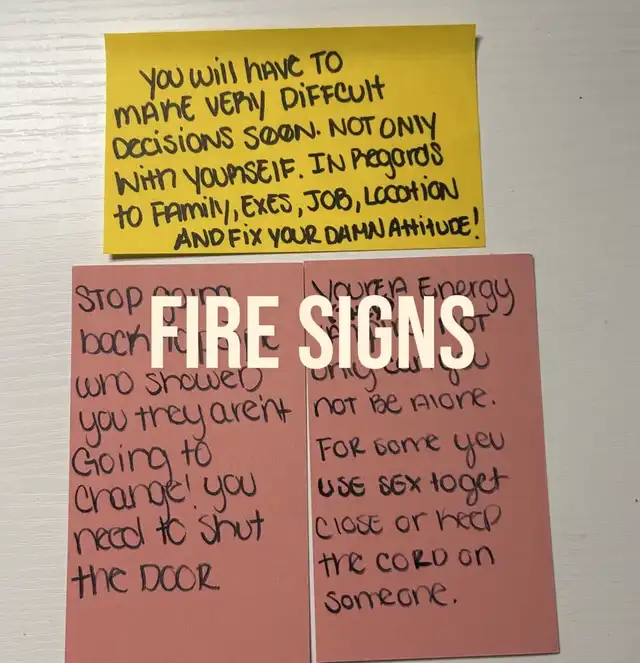 YOU WILL HAVE TO
MAKE VERY DIFFCULT
DECISIONS SOON. NOT ONLY
WITH YOURSELF. IN Regards
to FAMILY, EXES, JOB, LOCATION
AND FIX YOUR DAMN Attitude!
STOP going
back
who showed
you they aren't
Going to
change! you
need to shut
the DOOR
FIRE SIGNS
Energy
NOT
only can you
NOT BE Alone.
FOR some you
USE SEX to get
CLOSE or KEEP
the CORD on
someone.